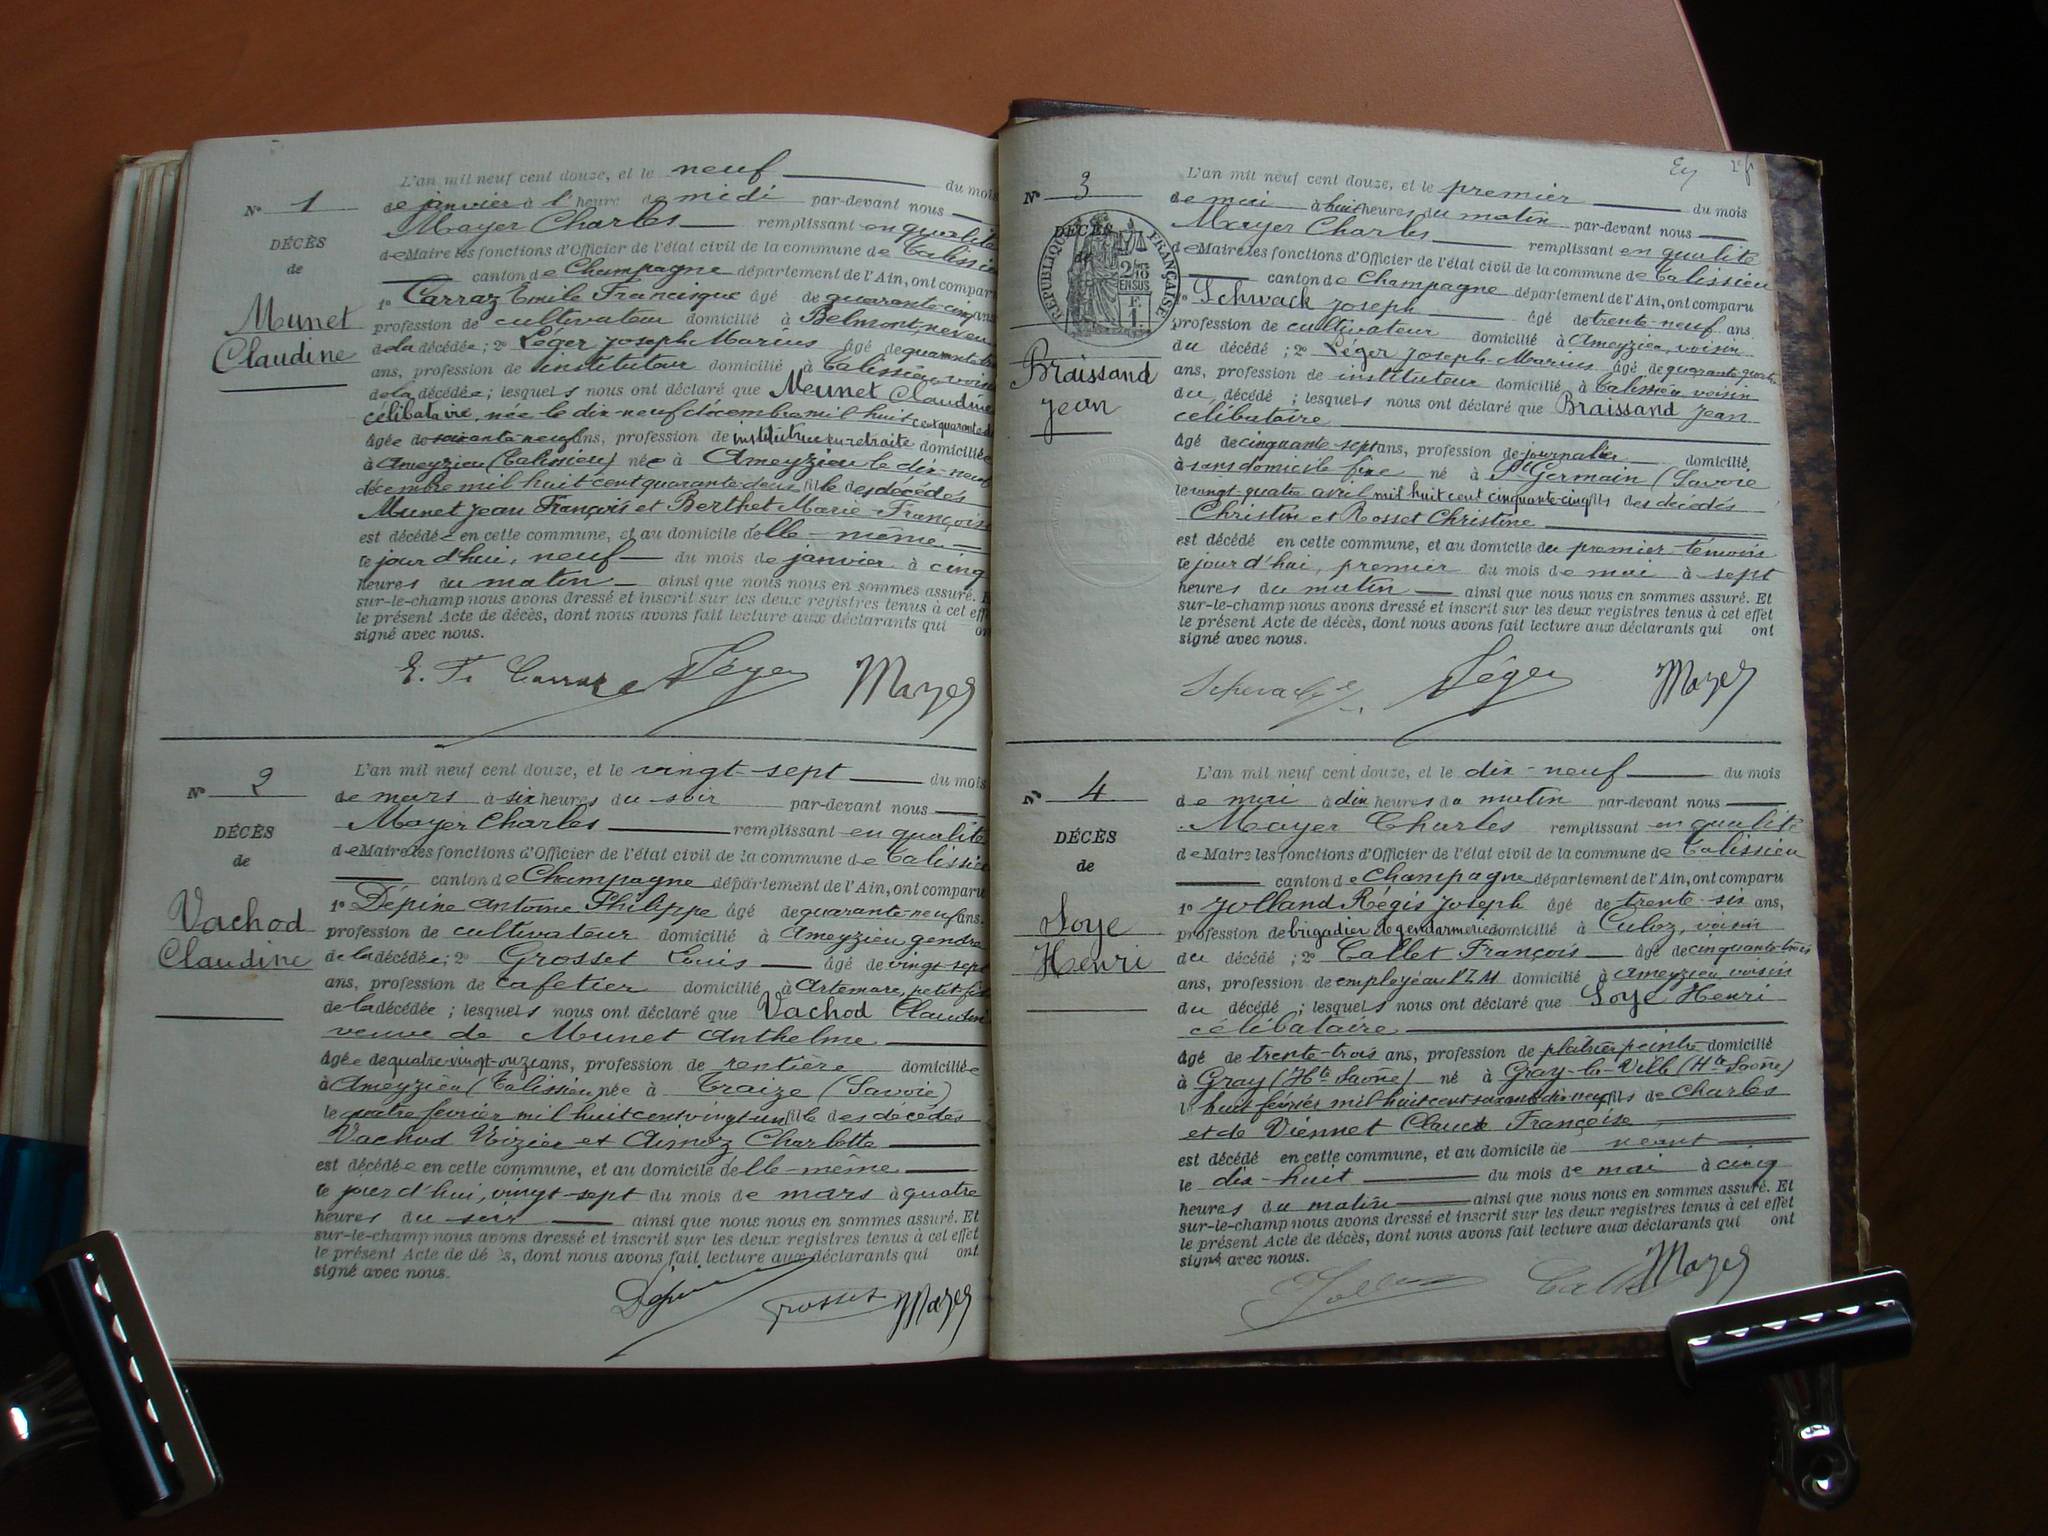 N° 1
DÉCÈS
de
Munet
Claudine
L'an mil neuf cent douze, et le neuf du mois
de janvier à l'heure de midi par-devant nous
Mayer Charles remplissant en qualité
de Maire les fonctions d'Officier de l'état civil de la commune de Talissieu
canton de Champagne département de l'Ain, ont comparu
1° Carraz Emile Francisque âgé de quarante-cinq ans
profession de cultivateur domicilié à Belmont neveu
de la décédée ; 2° Léger Joseph Marius âgé de quarante
ans, profession de instituteur domicilié à Talissieu, voisin
de la décédée ; lesquels nous ont déclaré que Munet Claudine
célibataire, née le dix-neuf décembre mil huit cent quarante
âgée de soixante-neuf ans, profession de institutrice en retraite domiciliée
à Ameyzieu (Talissieu) née à Ameyzieu le dix-neuf
décembre mil huit cent quarante-deux fille des décédés
Munet Jean François et Berthet Marie Françoise
est décédée en cette commune, et au domicile d'elle-même
le jour d'hui, neuf du mois de janvier à cinq
heures du matin ainsi que nous nous en sommes assuré. Et
sur-le-champ nous avons dressé et inscrit sur les deux registres tenus à cet effet
le présent Acte de décès, dont nous avons fait lecture aux déclarants qui ont
signé avec nous.
E. F. Carraz Léger Mayer
N° 2
DÉCÈS
de
Vachod
Claudine
L'an mil neuf cent douze, et le vingt-sept du mois
de mars à six heures du soir par-devant nous
Mayer Charles remplissant en qualité
de Maire les fonctions d'Officier de l'état civil de la commune de Talissieu
canton de Champagne département de l'Ain, ont comparu
1° Dépine Antoine Philippe âgé de quarante-neuf ans.
profession de cultivateur domicilié à Ameyzieu gendre
de la décédée ; 2° Grosset Louis âgé de vingt-sept
ans, profession de cafetier domicilié à Artemare, petit-fils
de la décédée ; lesquels nous ont déclaré que Vachod Claudine
veuve de Munet Anthelme
âgée de quatre-vingt-onze ans, profession de rentière domiciliée
à Ameyzieu (Talissieu) née à Traize (Savoie)
le quatre février mil huit cent vingt-un fille des décédés
Vachod Nizier et Aimoz Charlotte
est décédée en cette commune, et au domicile d'elle-même
le jour d'hui, vingt-sept du mois de mars à quatre
heures du soir ainsi que nous nous en sommes assuré. Et
sur-le-champ nous avons dressé et inscrit sur les deux registres tenus à cet effet
le présent Acte de décès, dont nous avons fait lecture aux déclarants qui ont
signé avec nous.
Grosset Mayer
N° 3
DÉCÈS
de
RÉPUBLIQUE FRANÇAISE
2/10
EN SUS
Braissand
Jean
L'an mil neuf cent douze, et le premier du mois
de mai à huit heures du matin par-devant nous
Mayer Charles remplissant en qualité
de Maire les fonctions d'Officier de l'état civil de la commune de Talissieu
canton de Champagne département de l'Ain, ont comparu
1° Schwack Joseph âgé de trente-neuf ans
profession de cultivateur domicilié à Ameyzieu, voisin
du décédé ; 2° Léger Joseph-Marius âgé de quarante-quatre
ans, profession de instituteur domicilié à Talissieu, voisin
du décédé ; lesquels nous ont déclaré que Braissand Jean
célibataire
âgé de cinquante-sept ans, profession de journalier domicilié
à sans domicile fixe né à St Germain (Savoie
le vingt-quatre avril mil huit cent cinquante-cinq fils des décédés
Christin et Rosset Christine
est décédé en cette commune, et au domicile du premier témoin
le jour d'hui, premier du mois de mai à sept
heures du matin ainsi que nous nous en sommes assuré. Et
sur-le-champ nous avons dressé et inscrit sur les deux registres tenus à cet effet
le présent Acte de décès, dont nous avons fait lecture aux déclarants qui ont
signé avec nous.
Léger Mayer
N° 4
DÉCÈS
de
Soye
Henri
L'an mil neuf cent douze, et le dix-neuf du mois
de mai à dix heures du matin par-devant nous
Mayer Charles remplissant en qualité
de Maire les fonctions d'Officier de l'état civil de la commune de Talissieu
canton de Champagne département de l'Ain, ont comparu
1° Jolland Régis Joseph âgé de trente-six ans,
profession de brigadier de gendarmerie domicilié à Culoz, voisin
du décédé ; 2° Callet François âgé de cinquante-trois
ans, profession de employé au P.L.M domicilié à Ameyzieu, voisin
du décédé ; lesquels nous ont déclaré que Soye Henri
célibataire
âgé de trente-trois ans, profession de plâtrier peintre domicilié
à Gray (Hte Saône) né à Gray-la-Ville (Hte Saône)
le huit février mil huit cent soixante-dix-neuf fils de Charles
et de Viennet Claude Françoise
est décédé en cette commune, et au domicile de néant
le dix-huit du mois de mai à cinq
heures du matin ainsi que nous nous en sommes assuré. Et
sur-le-champ nous avons dressé et inscrit sur les deux registres tenus à cet effet
le présent Acte de décès, dont nous avons fait lecture aux déclarants qui ont
signé avec nous.
Mayer